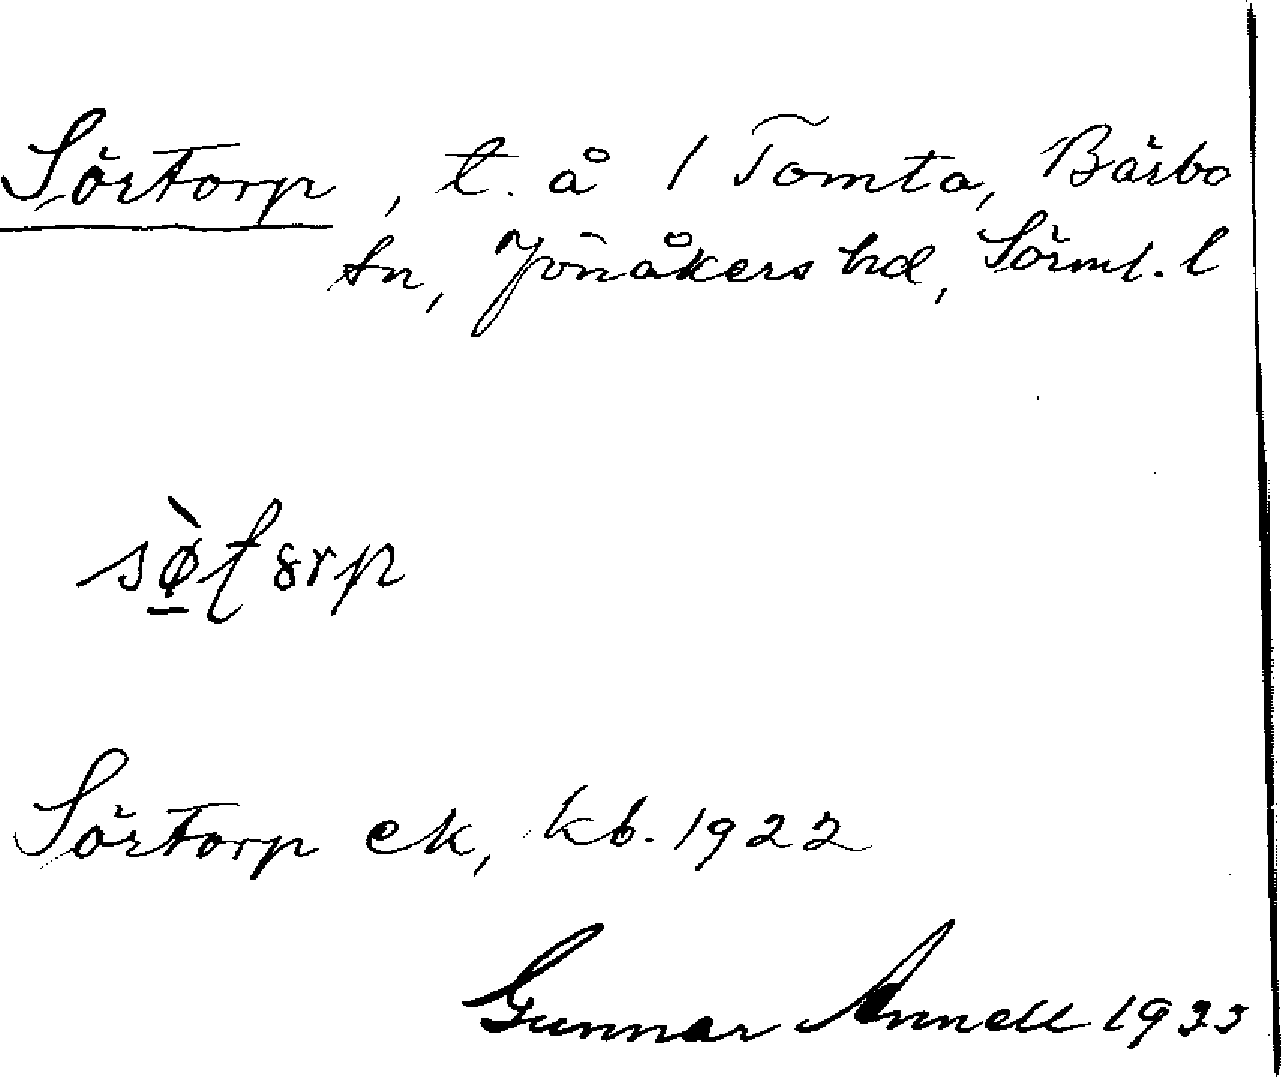 Sörtorp, t. å 1 Tomta, Bärbo
sn, Jönåkers hd, Sörml. l
Sörtorp ek, kb. 1922
Gunnar Annell 1933